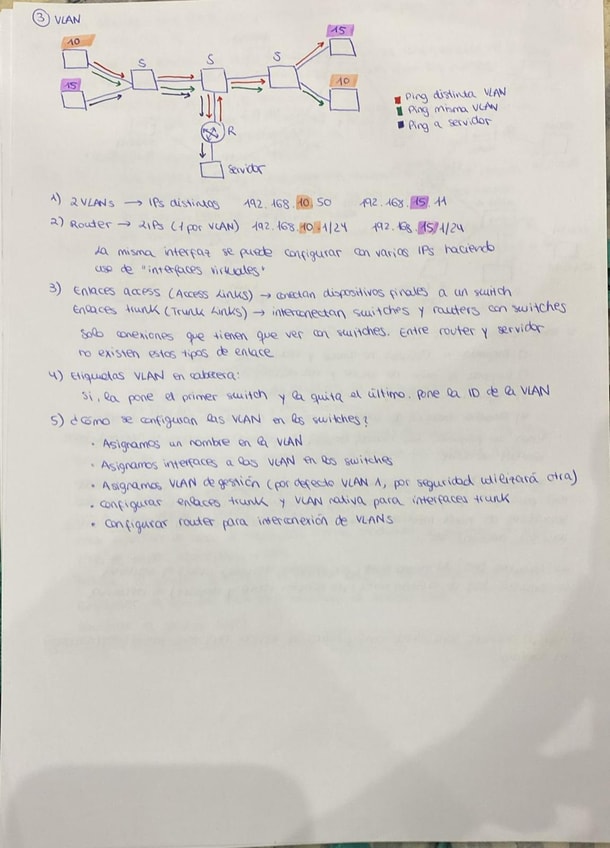 ③ VLAN
10
15
S
S
S
15
10
R
Servidor
Ping distinta VLAN
Ping misma VLAN
Ping a servidor
1) 2 VLANs → IPs distintas 192.168.10.50 192.168.15.11
2) Router → 2 IPs (1 por VLAN) 192.168.10.1/24 192.168.15.1/24
La misma interfaz se puede configurar con varias IPs haciendo
uso de "interfaces virtuales"
3) Enlaces access (Access Links) → conectan dispositivos finales a un switch
Enlaces trunk (Trunk Links) → interconectan switches y routers con switches
Solo conexiones que tienen que ver con switches. Entre router y servidor
no existen estos tipos de enlace
4) Etiquetas VLAN en cabecera:
Sí, la pone el primer switch y la quita el último. Pone la ID de la VLAN
5) ¿Cómo se configuran las VLAN en los switches?
• Asignamos un nombre en la VLAN
• Asignamos interfaces a las VLAN en los switches
• Asignamos VLAN de gestión (por defecto VLAN 1, por seguridad utilizará otra)
• Configurar enlaces trunk y VLAN nativa para interfaces trunk
• Configurar router para interconexión de VLANs